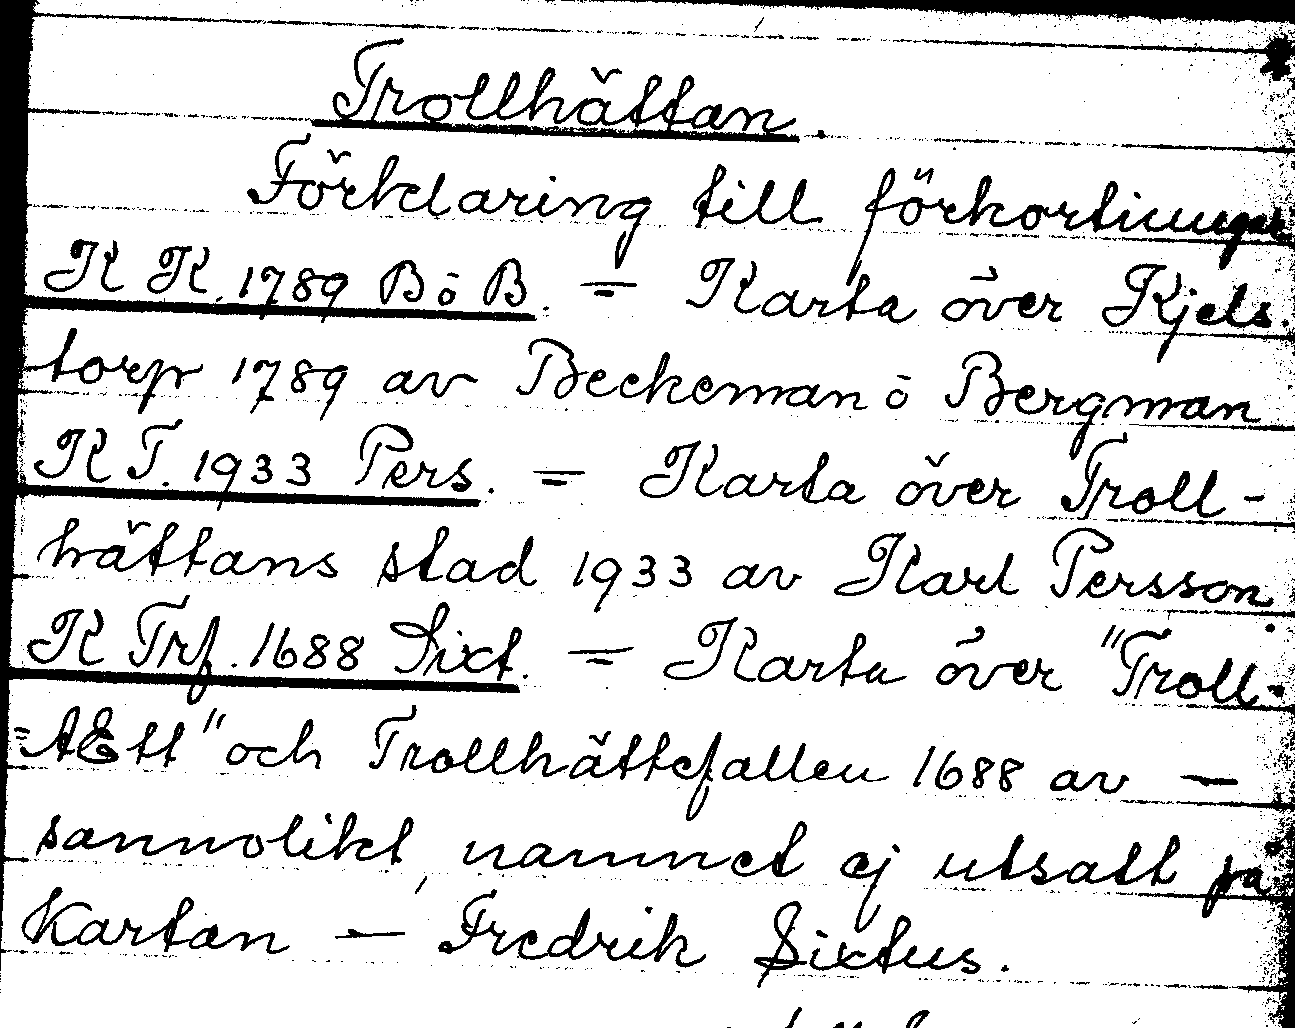 Trollhättan.
Förklaring till förkortningar
K K. 1789 B ō B. = Karta över Kjels-
torp 1789 av Beckeman ō Bergman
K T. 1933 Pers. = Karta över Troll-
hättans stad 1933 av Karl Persson.
K Trf. 1688 Sixt. = Karta över "Troll-
=AEtt" och Trollhättefallen 1688 av —
sannolikt, namnet ej utsatt på
Kartan — Fredrik Sixtus.